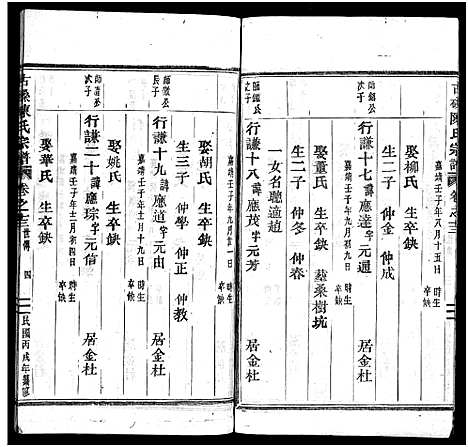 古磉陳氏宗譜 卷之三
嘉靖壬子年八月十五 時生 卒缺
娶柳氏 生卒缺
生二子 仲金 仲成
師錫公
行謙十七 諱應達 字元通
嘉靖壬子年九月初三日 時生 卒缺
娶董氏 生卒缺 葬桑樹坑
生二子 仲冬 仲春
一女名聰適趙
之子
行謙十八 諱應茂 字元芳
居金杜
嘉靖壬子年九月廿一日 時生 卒缺
娶胡氏 生卒缺
生三子 仲學 仲正 仲教
師徵公
長子
行謙十九 諱應道 字元由
居金杜
嘉靖壬子年十二月十九日 時生 卒缺
娶姚氏 生卒缺
師清公
次子
行謙二十 諱應琮 字元信
居金杜
嘉靖壬子年十二月初四日 時生 卒缺
娶華氏 生卒缺
古磉陳氏宗譜 卷之三 世傳 四 民國丙戌年纂修